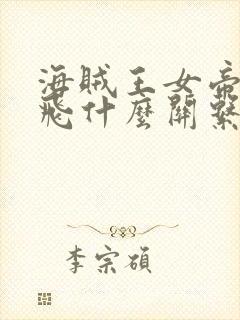 海賊王女帝
飛什麼關繫
李宗碩